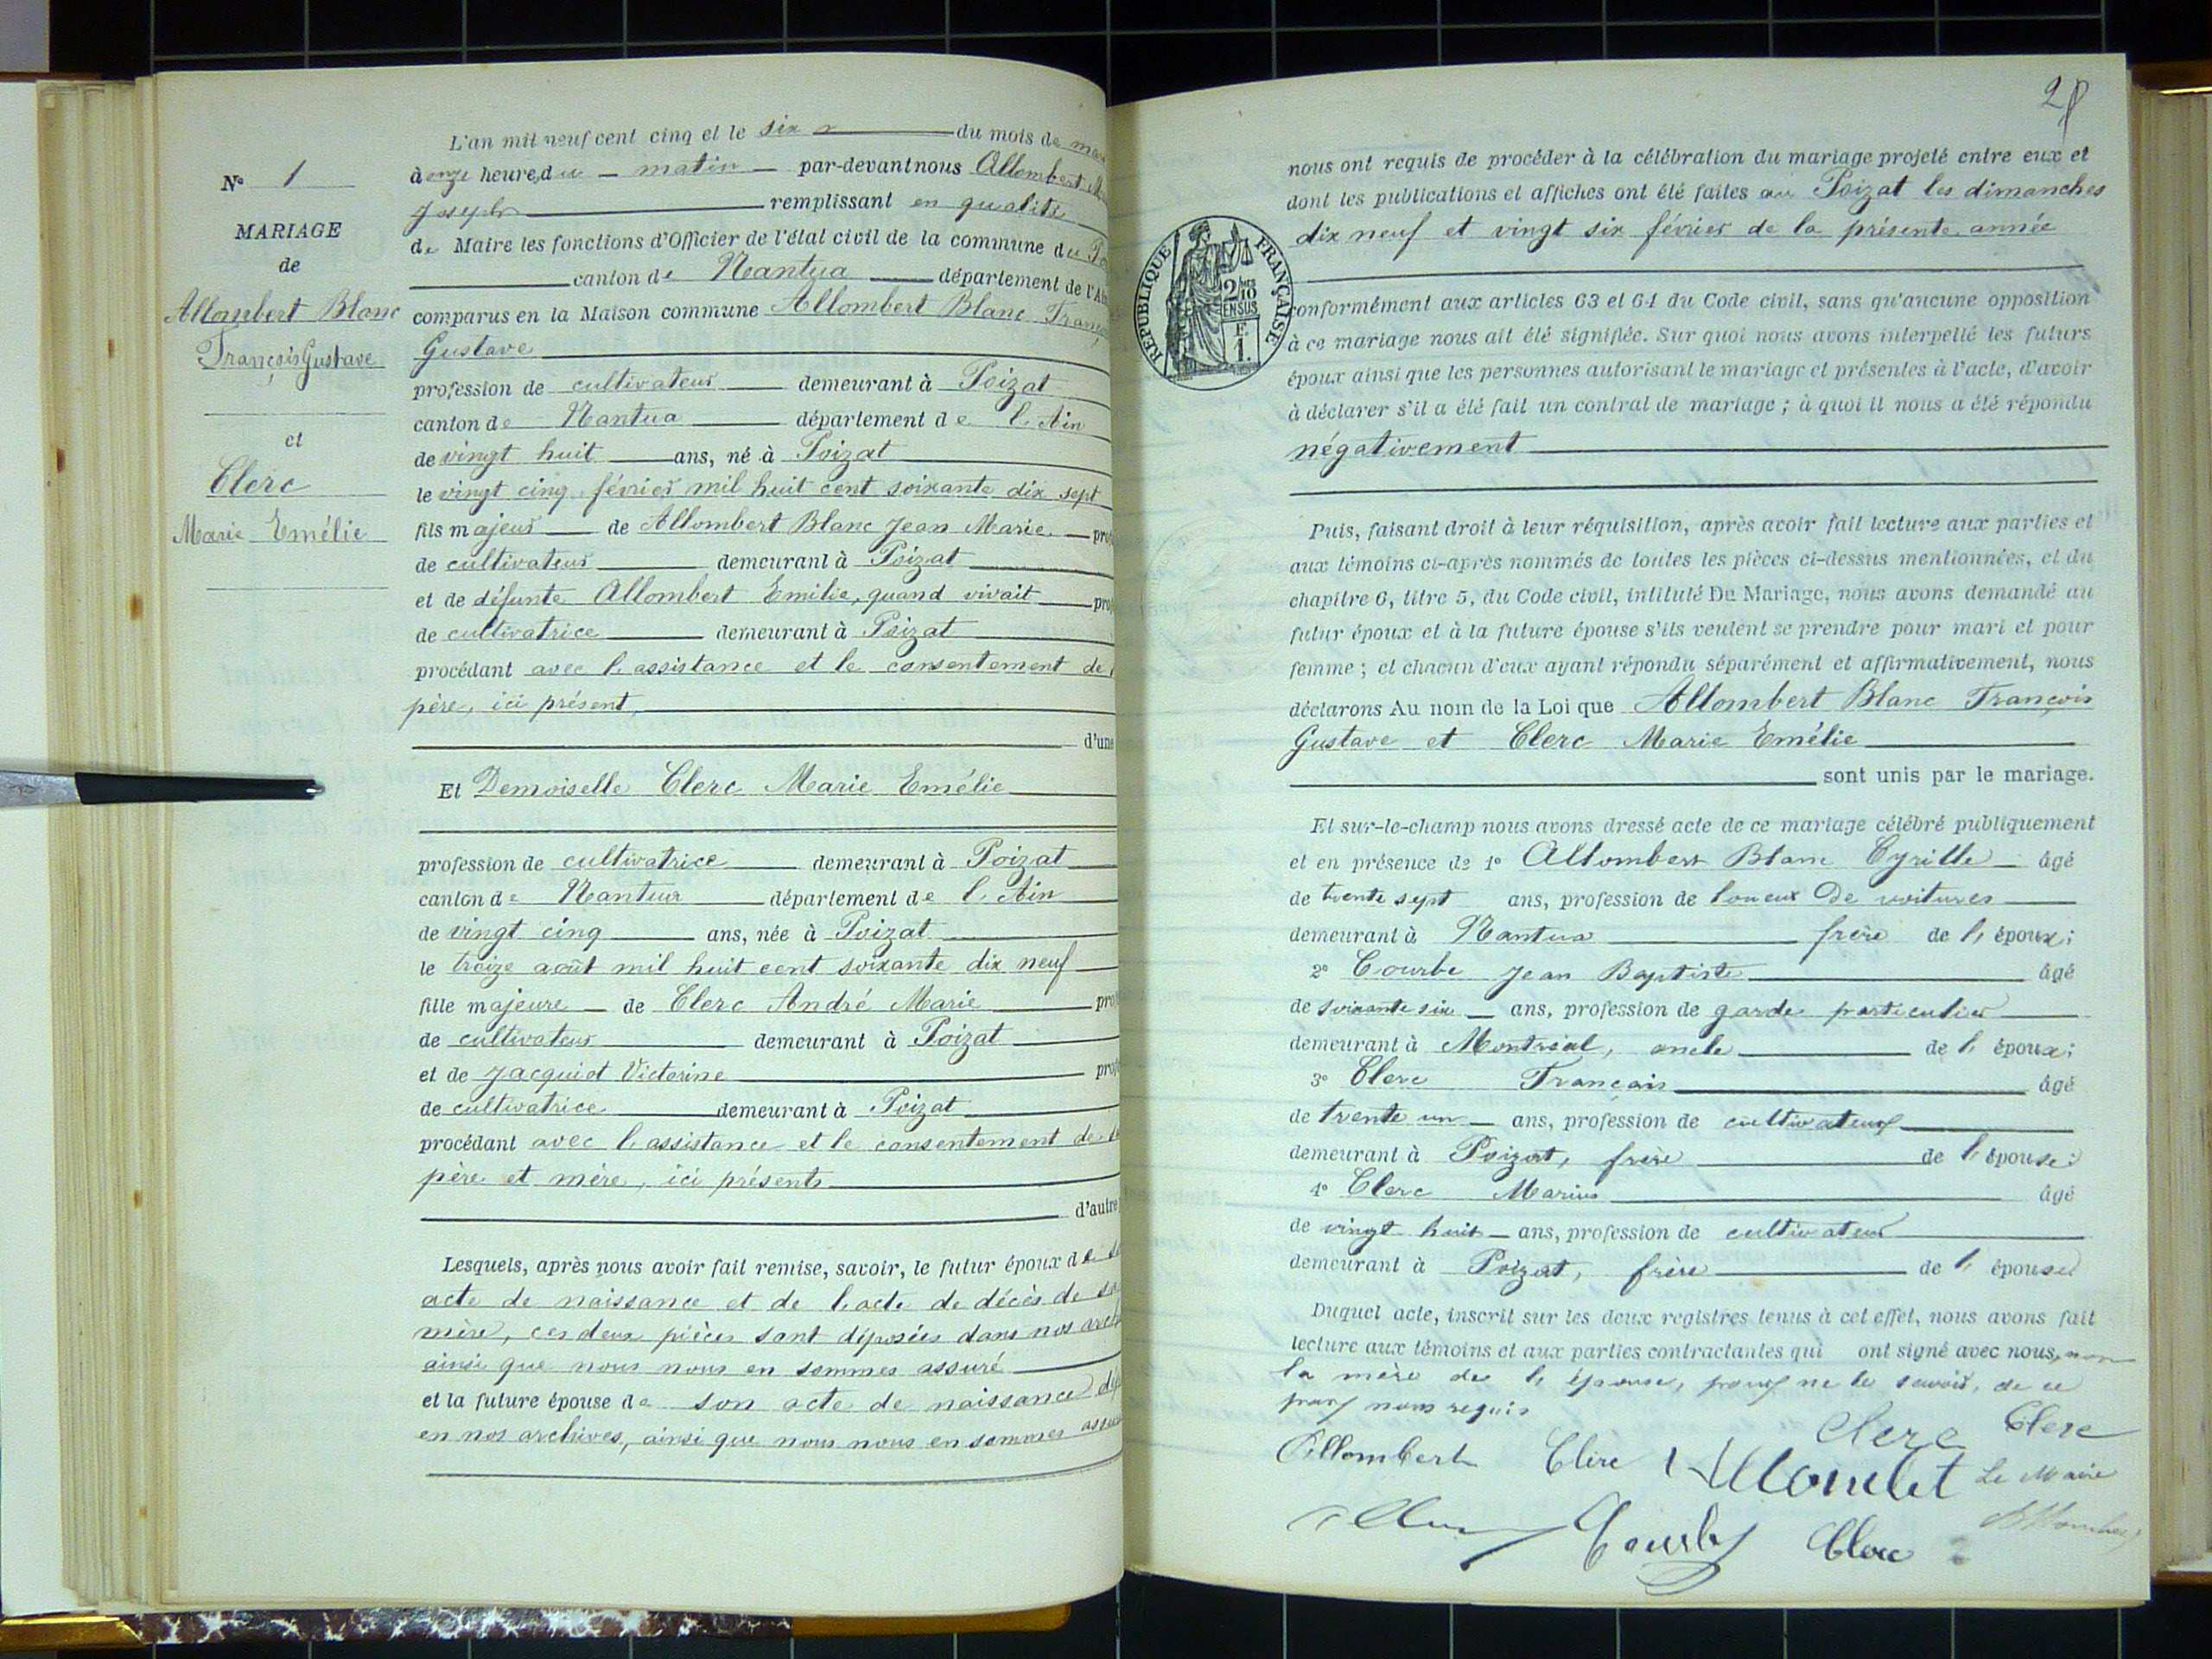 L'an mil neuf cent cinq et le six du mois de
à onze heure, du matin par-devant nous Allombert
Joseph remplissant en qualité
de Maire les fonctions d'Officier de l'état civil de la commune du
canton de Nantua département de l'Ain
comparus en la Maison commune Allombert Blanc François
Gustave
profession de cultivateur demeurant à Poizat
canton de Nantua département de l'Ain
de vingt huit ans, né à Poizat
le vingt cinq février mil huit cent soixante dix sept
fils majeur de Allombert Blanc Jean Marie
de cultivateur demeurant à Poizat
et de défunte Allombert Emilie, quand vivait
de cultivatrice demeurant à Poizat
procédant avec l'assistance et le consentement de
père, ici présent,
d'une
Et Demoiselle Clerc Marie Emélie
profession de cultivatrice demeurant à Poizat
canton de Nantua département de l'Ain
de vingt cinq ans, née à Poizat
le treize août mil huit cent soixante dix neuf
fille majeure de Clerc André Marie
de cultivateur demeurant à Poizat
et de Jacquiot Victorine
de cultivatrice demeurant à Poizat
procédant avec l'assistance et le consentement de
père et mère, ici présents
d'autre
Lesquels, après nous avoir fait remise, savoir, le futur époux de
acte de naissance et de l'acte de décès de sa
mère, ces deux pièces sont déposées dans nos
ainsi que nous nous en sommes assuré
et la future épouse de son acte de naissance
en nos archives, ainsi que nous nous en sommes
N° 1
MARIAGE
de
Allombert Blanc
François Gustave
et
Clerc
Marie Emélie
2
nous ont requis de procéder à la célébration du mariage projeté entre eux et
dont les publications et affiches ont été faites au Poizat les dimanches
dix neuf et vingt six février de la présente année
RÉPUBLIQUE FRANÇAISE
2/10
EN SUS
F.
1.
conformément aux articles 63 et 64 du Code civil, sans qu'aucune opposition
à ce mariage nous ait été signifiée. Sur quoi nous avons interpellé les futurs
époux ainsi que les personnes autorisant le mariage et présentes à l'acte, d'avoir
à déclarer s'il a été fait un contrat de mariage ; à quoi il nous a été répondu
négativement
Puis, faisant droit à leur réquisition, après avoir fait lecture aux parties et
aux témoins ci-après nommés de toutes les pièces ci-dessus mentionnées, et du
chapitre 6, titre 5, du Code civil, intitulé Du Mariage, nous avons demandé au
futur époux et à la future épouse s'ils veulent se prendre pour mari et pour
femme ; et chacun d'eux ayant répondu séparément et affirmativement, nous
déclarons Au nom de la Loi que Allombert Blanc François
Gustave et Clerc Marie Emélie
sont unis par le mariage.
Et sur-le-champ nous avons dressé acte de ce mariage célébré publiquement
et en présence de 1° Allombert Blanc Cyrille âgé
de trente sept ans, profession de loueur de voitures
demeurant à Nantua frère de l'époux ;
2° Courbe Jean Baptiste âgé
de soixante six ans, profession de garde particulier
demeurant à Montréal, oncle de l'époux ;
3° Clerc Français âgé
de trente un ans, profession de cultivateur
demeurant à Poizat, frère de l'épouse ;
4° Clerc Marius âgé
de vingt huit ans, profession de cultivateur
demeurant à Poizat, frère de l'épouse
Duquel acte, inscrit sur les deux registres tenus à cet effet, nous avons fait
lecture aux témoins et aux parties contractantes qui ont signé avec nous, non
la mère de l'épouse, pour ne le savoir, de ce
par nous requis
Clerc Clerc
Allombert Clerc Le Maire
Courbe Clerc